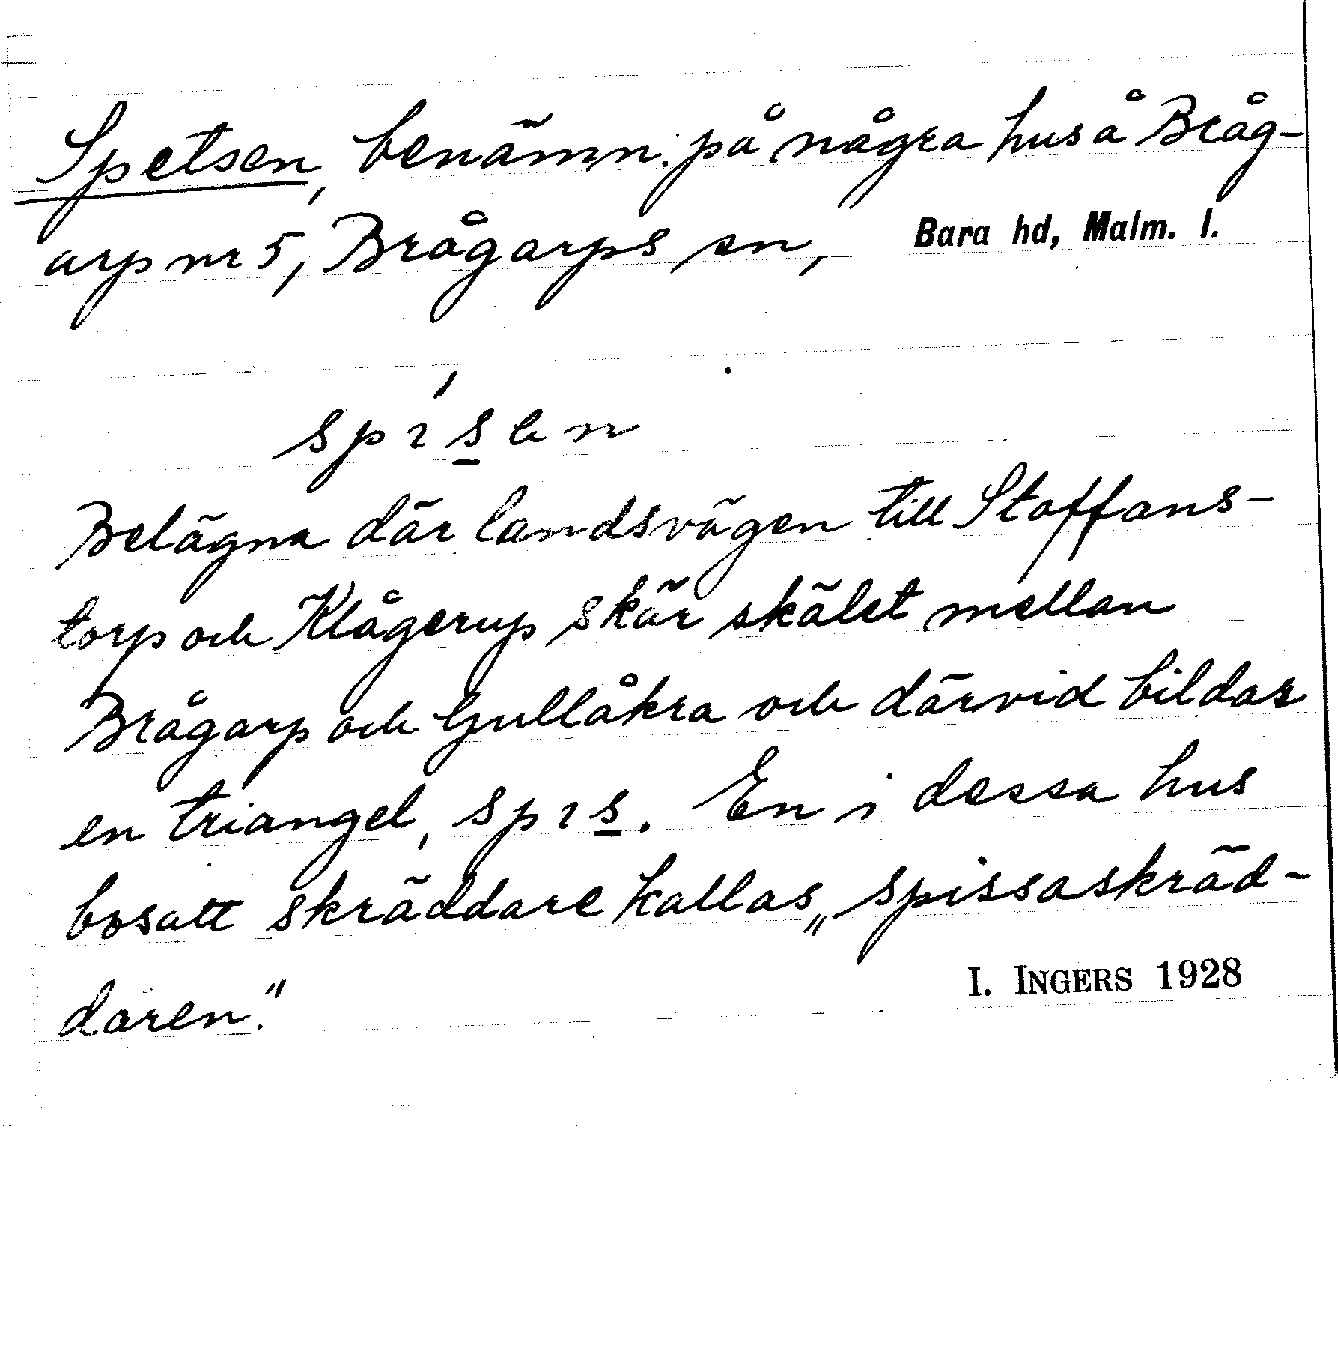 Spetsen, benämn. på några hus å Bråg-
arp nr 5, Brågarps sn, Bara hd, Malm. l.
spɪs̲ən
Belägna där landsvägen till Staffans-
torp och Klågerup skär skälet mellan
Brågarp och Gullåkra och därvid bildar
en triangel, spɪs̲. En i dessa hus
bosatt skräddare kallas „spissaskräd-
daren."
I. INGERS 1928